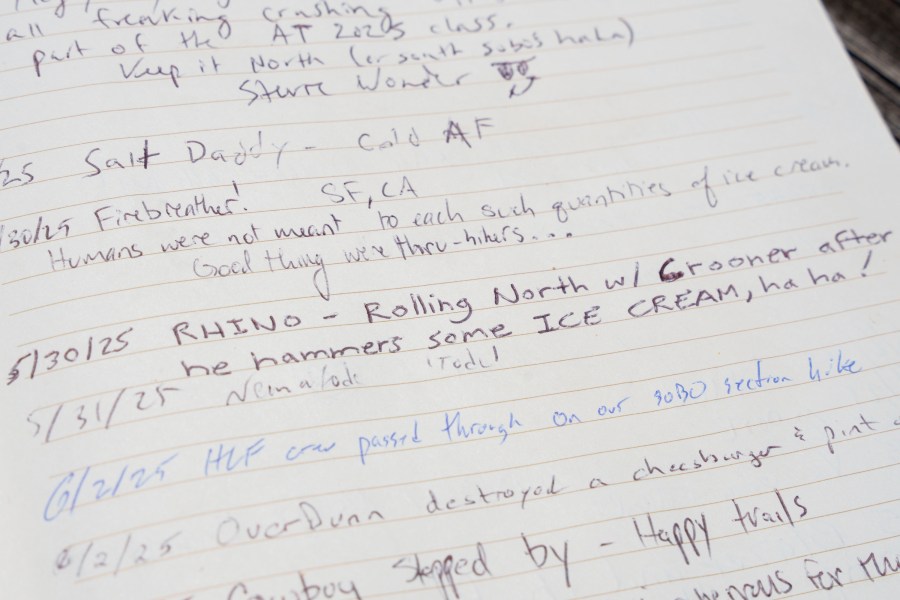 all freaking crushing
part of the AT 2025 class.
Keep it North (or south sobos haha)
Stevie Wonder
25 Salt Daddy - Cold AF
/30/25 Firebreather! SF, CA
Humans were not meant to each such quantities of ice cream.
Good thing we're thru-hikers...
5/30/25 RHINO - Rolling North w/ Crooner after
he hammers some ICE CREAM, ha ha!
5/31/25 Nematode 'Tode'
6/2/25 HLF crew passed through on our SOBO section hike
6/2/25 OverDunn destroyed a cheesburger & pint
Cowboy stopped by - Happy trails
for